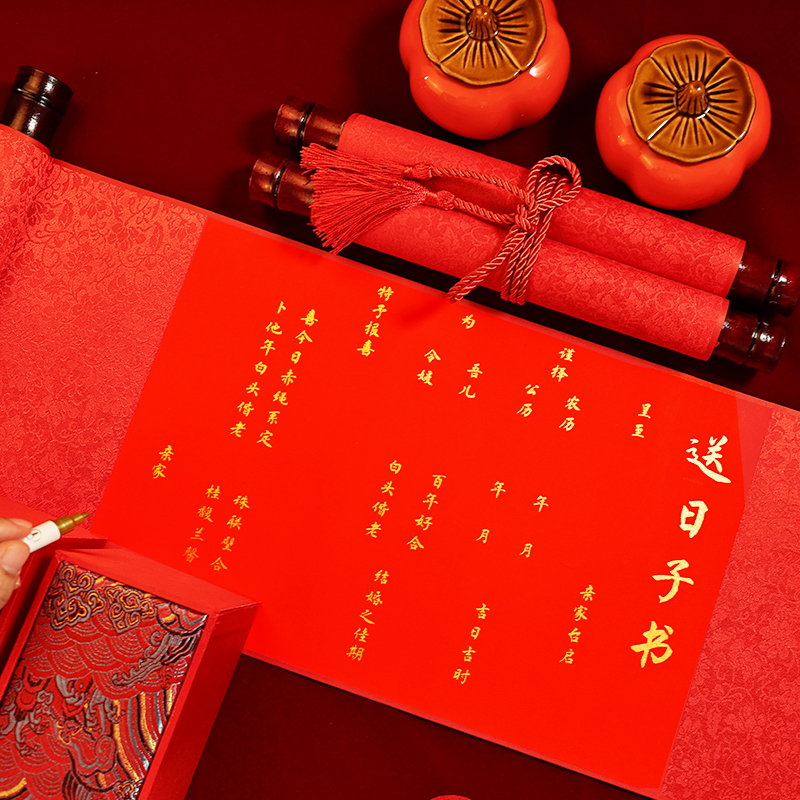 送日子书
呈至 亲家台启
谨择 农历 年 月
公历 年 月 吉日吉时
为 吾儿 百年好合
令媛 白头偕老 结婚之佳期
特予报喜
喜今日赤绳系定 珠联璧合
卜他年白头偕老 桂馥兰馨
亲家